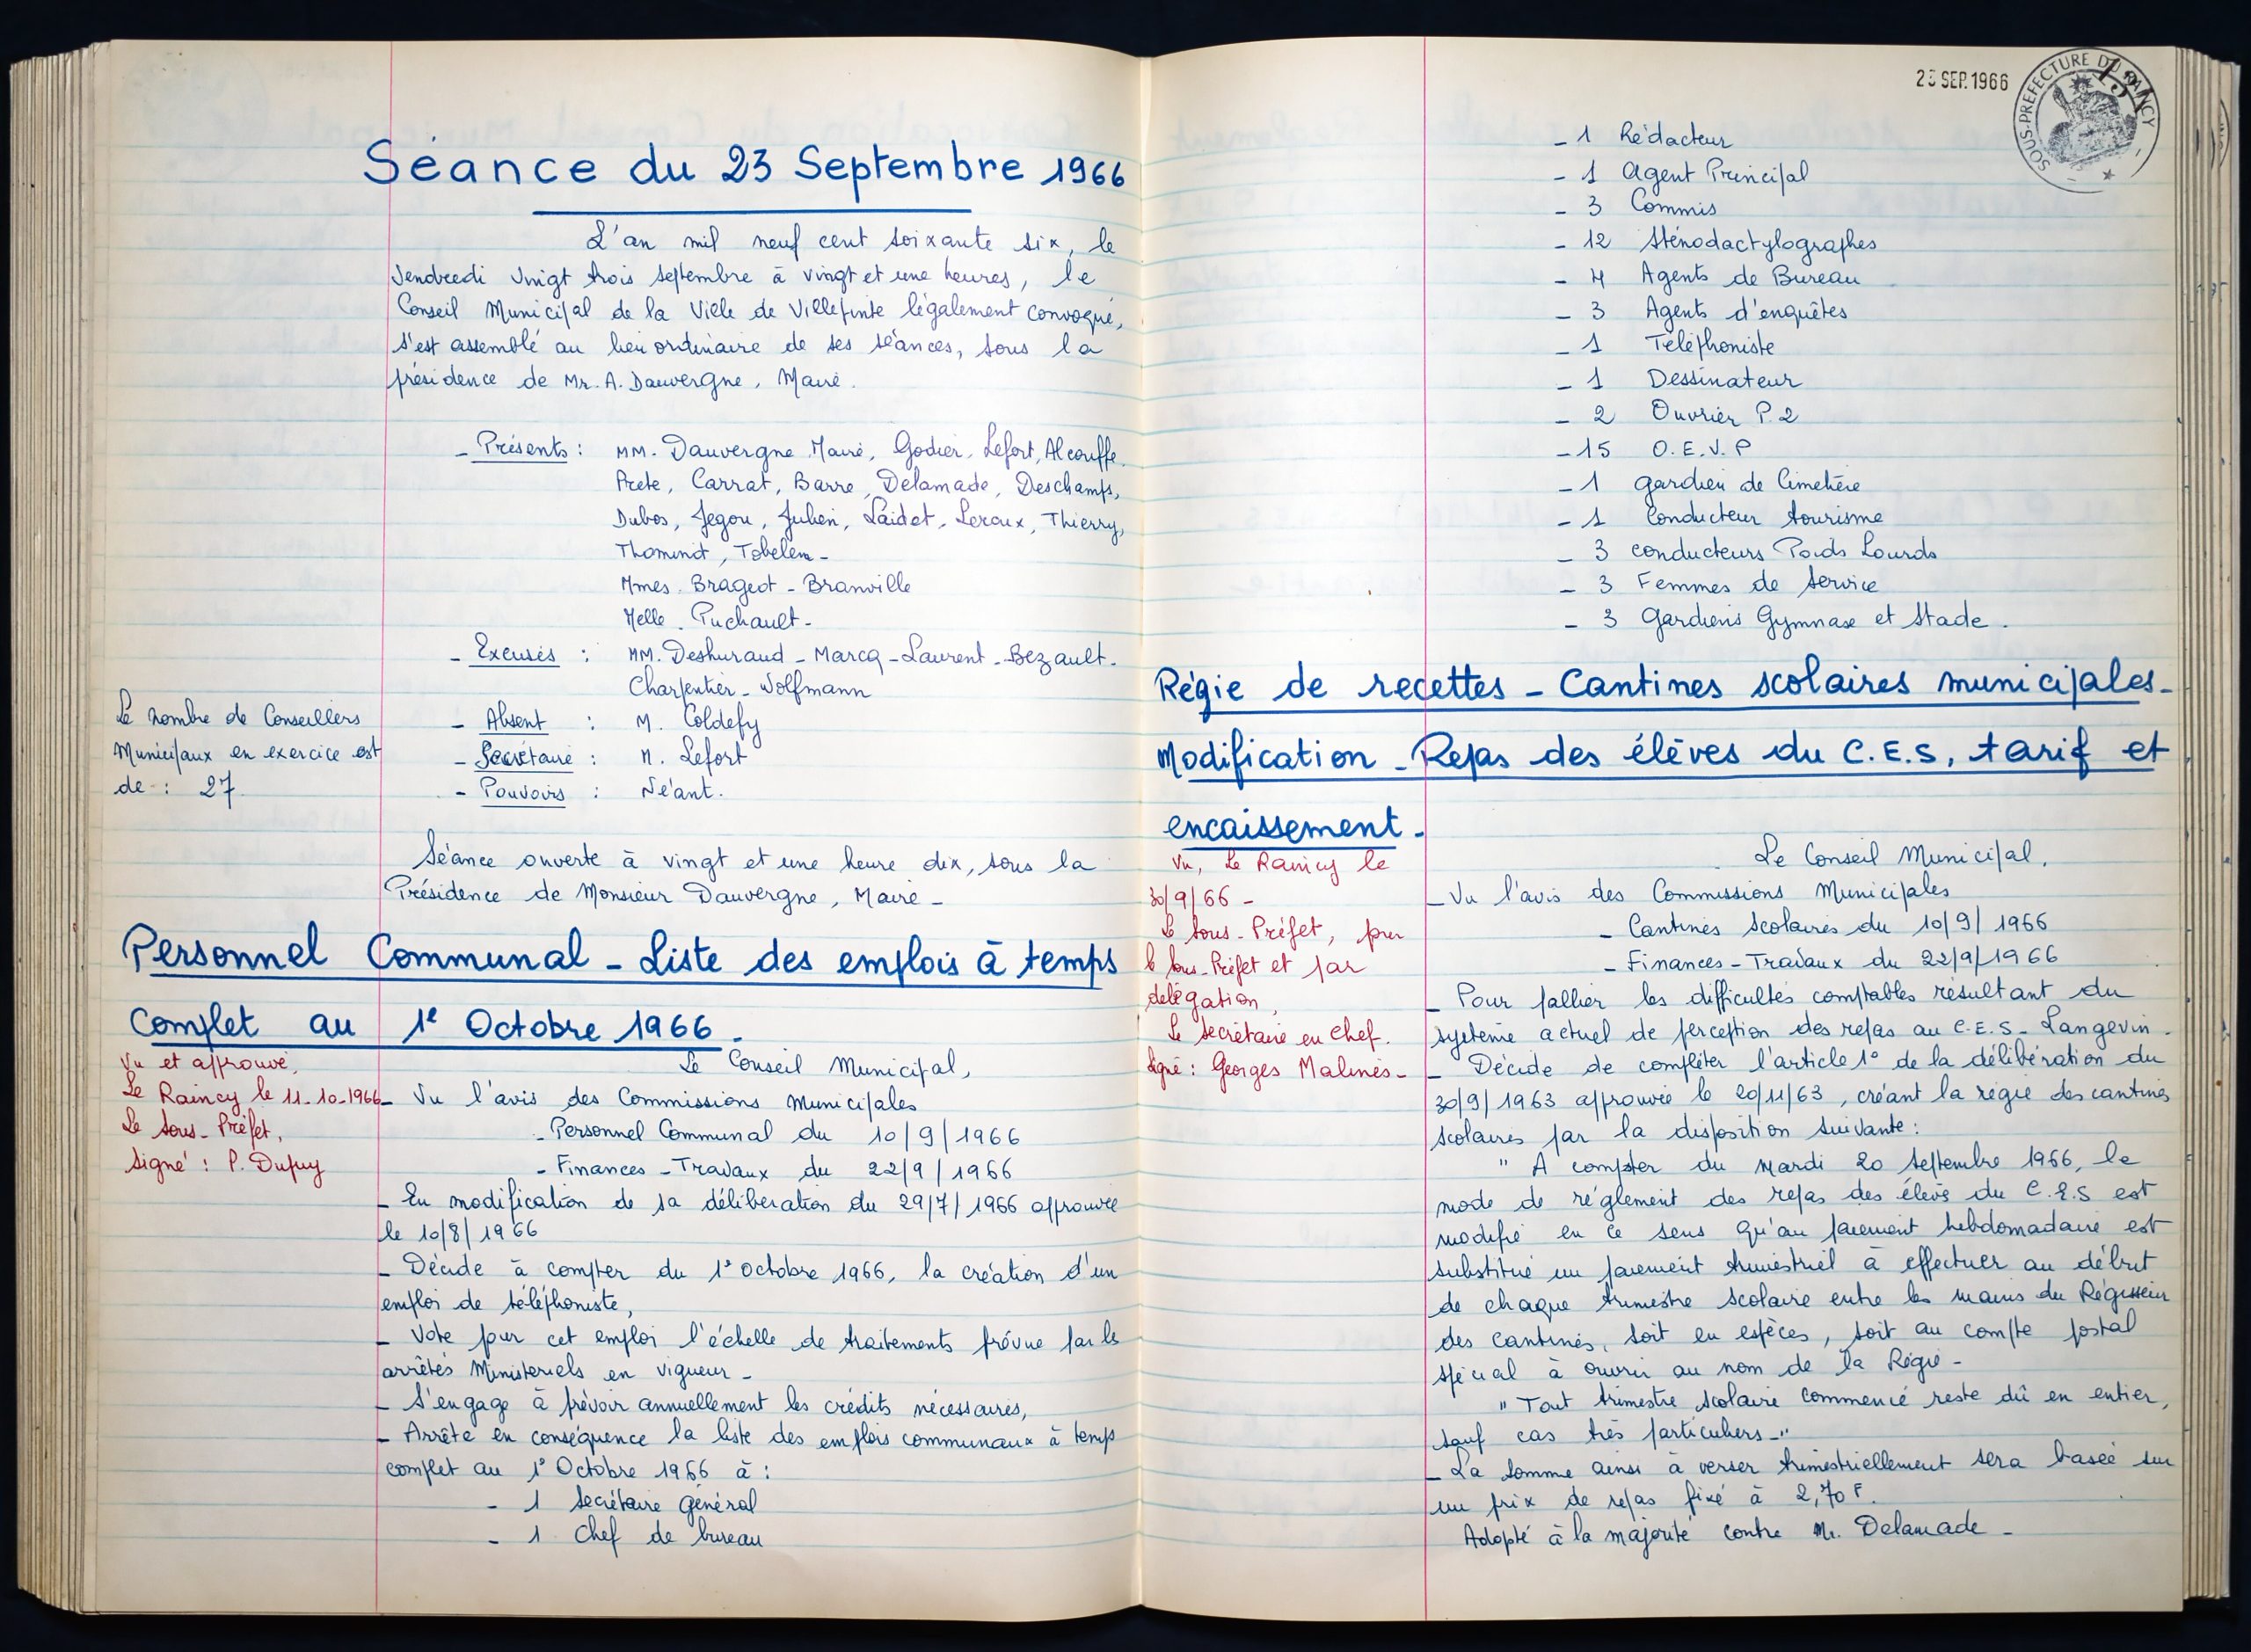 Séance du 23 Septembre 1966
L'an mil neuf cent soixante six, le
Vendredi vingt trois septembre à vingt et une heures, le
Conseil Municipal de la Ville de Villepinte légalement convoqué,
s'est assemblé au lieu ordinaire de ses séances, sous la
présidence de Mr. A. Dauvergne, Maire.
- Présents : MM. Dauvergne Maire, Godier, Lefort, Alcouffe.
Prete, Carrat, Barre, Delamade, Deschamps,
Dubos, Jegou, Julien, Laidet, Leroux, Thierry,
Thominot, Tobelem -
Mmes. Brageot - Branville
Melle. Puchault -
- Excusés : MM. Deshuraud - Marcq - Laurent - Bezault.
Charpentier - Wolfmann
- Absent : M. Coldefy
- Secrétaire : M. Lefort
- Pouvoirs : Néant.
Le nombre de Conseillers
Municipaux en exercice est
de : 27
Séance ouverte à vingt et une heure dix, sous la
Présidence de Monsieur Dauvergne, Maire -
Personnel Communal - Liste des emplois à temps
Complet au 1e Octobre 1966.
Vu et approuvé,
Le Raincy le 11-10-1966
Le Sous-Préfet,
Signé : P. Dupuy
Le Conseil Municipal,
- Vu l'avis des Commissions Municipales
- Personnel Communal du 10/9/1966
- Finances - Travaux du 22/9/1966
- En modification de sa délibération du 29/7/1966 approuvée
le 10/8/1966
- Décide à compter du 1° Octobre 1966, la création d'un
emploi de téléphoniste,
- Vote pour cet emploi l'échelle de traitements prévue par les
arrêtés Ministeriels en vigueur -
- S'engage à prévoir annuellement les crédits nécessaires,
- Arrête en conséquence la liste des emplois communaux à temps
complet au 1° Octobre 1966 à :
- 1 Secrétaire Général
- 1 Chef de bureau
23 SEP. 1966
SOUS-PREFECTURE DU RAINCY
- 1 Rédacteur
- 1 Agent Principal
- 3 Commis
- 12 Sténodactylographes
- 4 Agents de Bureau
- 3 Agents d'enquêtes
- 1 Téléphoniste
- 1 Dessinateur
- 2 Ouvrier P.2
- 15 O.E.V.P
- 1 gardien de Cimetière
- 1 Conducteur tourisme
- 3 conducteurs Poids Lourds
- 3 Femmes de Service
- 3 Gardiens Gymnase et Stade.
Régie de recettes - Cantines scolaires municipales -
Modification - Repas des élèves du C.E.S, tarif et
encaissement -
Vu, Le Raincy le
30/9/66 -
Le Sous-Préfet, pour
le Sous-Préfet et par
délégation,
Le secrétaire en chef.
Signé : Georges Malinès -
Le Conseil Municipal,
- Vu l'avis des Commissions Municipales
- Cantines Scolaires du 10/9/1966
- Finances - Travaux du 22/9/1966
- Pour pallier les difficultés comptables résultant du
système actuel de perception des repas au C.E.S - Langevin.
- Décide de compléter l'article 1° de la délibération du
30/9/1963 approuvée le 20/11/63, créant la régie des cantines
scolaires par la disposition suivante :
" A compter du Mardi 20 Septembre 1966, le
mode de réglement des repas des élèves du C.E.S est
modifié en ce sens qu'au paiement hebdomadaire est
substitué un paiement trimestriel à effectuer au début
de chaque trimestre scolaire entre les mains du Régisseur
des cantines, soit en espèces, soit au compte postal
spécial à ouvrir au nom de la Régie -
" Tout trimestre scolaire commencé reste dû en entier,
sauf cas très particuliers -"
- La somme ainsi à verser trimestriellement sera basée sur
un prix de repas fixé à 2,70 F.
Adopté à la majorité contre Mr. Delamade -